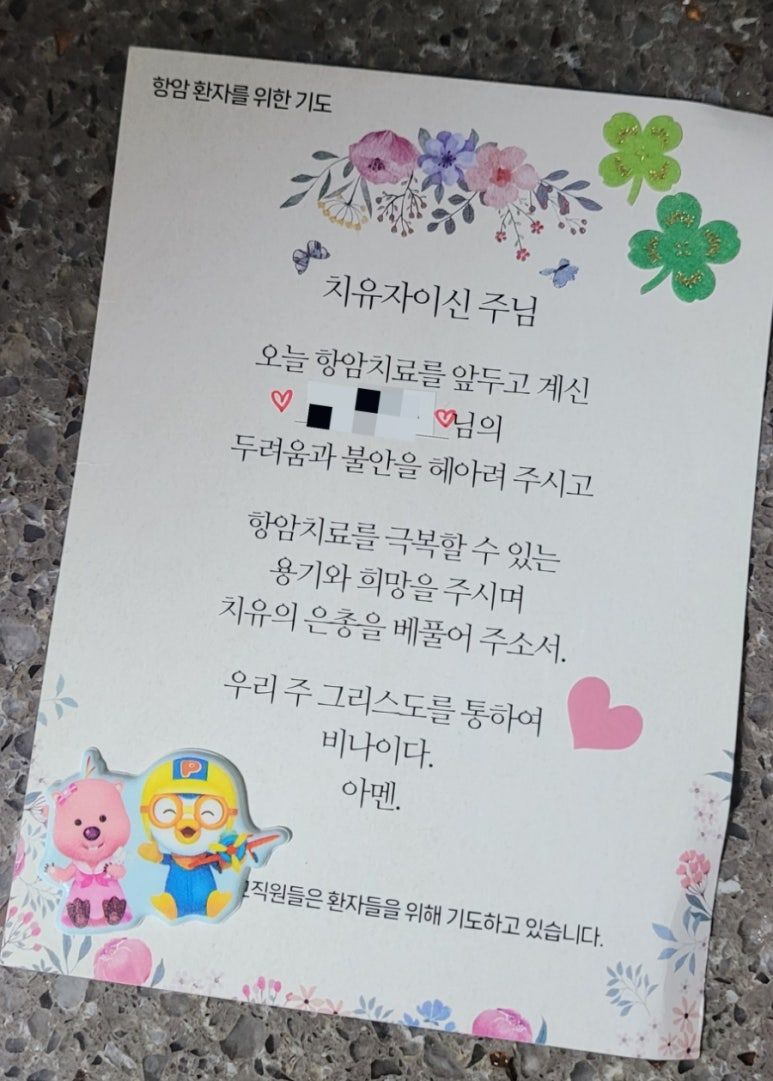 항암 환자를 위한 기도
치유자이신 주님
오늘 항암치료를 앞두고 계신
님의
두려움과 불안을 헤아려 주시고
항암치료를 극복할 수 있는
용기와 희망을 주시며
치유의 은총을 베풀어 주소서.
우리 주 그리스도를 통하여
비나이다.
아멘.
P
환자들을 위해 기도하고 있습니다.